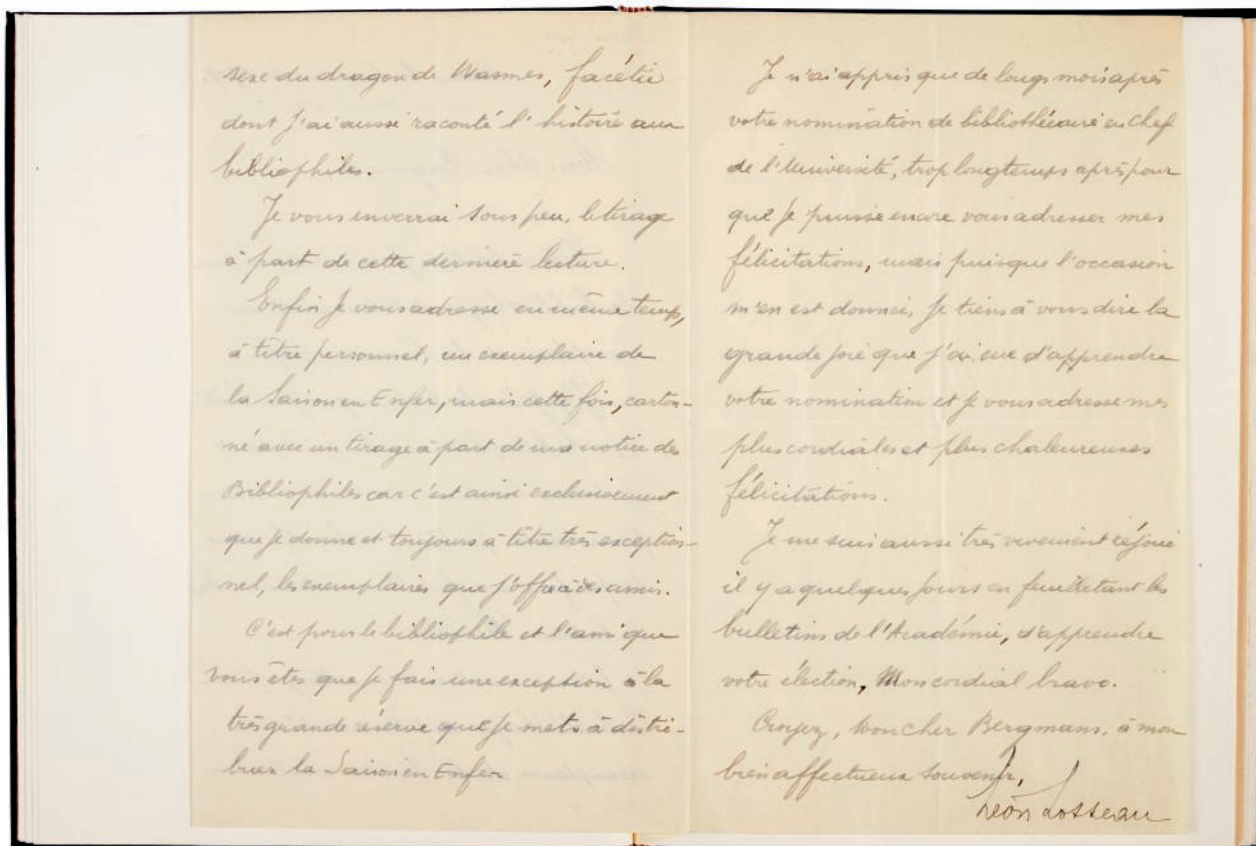 sexe du dragon de Wasmes, facétie
dont j'ai aussi raconté l'histoire aux
bibliophiles.
Je vous enverrai sous peu, le tirage
à part de cette dernière lecture.
Enfin je vous adresse en même temps,
à titre personnel, un exemplaire de
la Saison en Enfer, mais cette fois, carton-
né avec un tirage à part de ma notice des
Bibliophiles car c'est ainsi exclusivement
que je donne et toujours à titre très exception-
nel, les exemplaires que j'offre à des amis.
C'est pour le bibliophile et l'ami que
vous êtes que je fais une exception à la
très grande réserve que je mets à distri-
buer la Saison en Enfer
Je n'ai appris que de longs mois après
votre nomination de bibliothécaire en Chef
de l'Université, trop longtemps après pour
que je puisse encore vous adresser mes
félicitations, mais puisque l'occasion
m'en est donnée, je tiens à vous dire la
grande joie que j'ai eue d'apprendre
votre nomination et je vous adresse mes
plus cordiales et plus chaleureuses
félicitations.
Je me suis aussi très vivement réjoui
il y a quelques jours en feuilletant les
bulletins de l'Académie, d'apprendre
votre élection, Mon cordial bravo.
Croyez, mon cher Bergmans, à mon
bien affectueux souvenir,
Léon Losseau